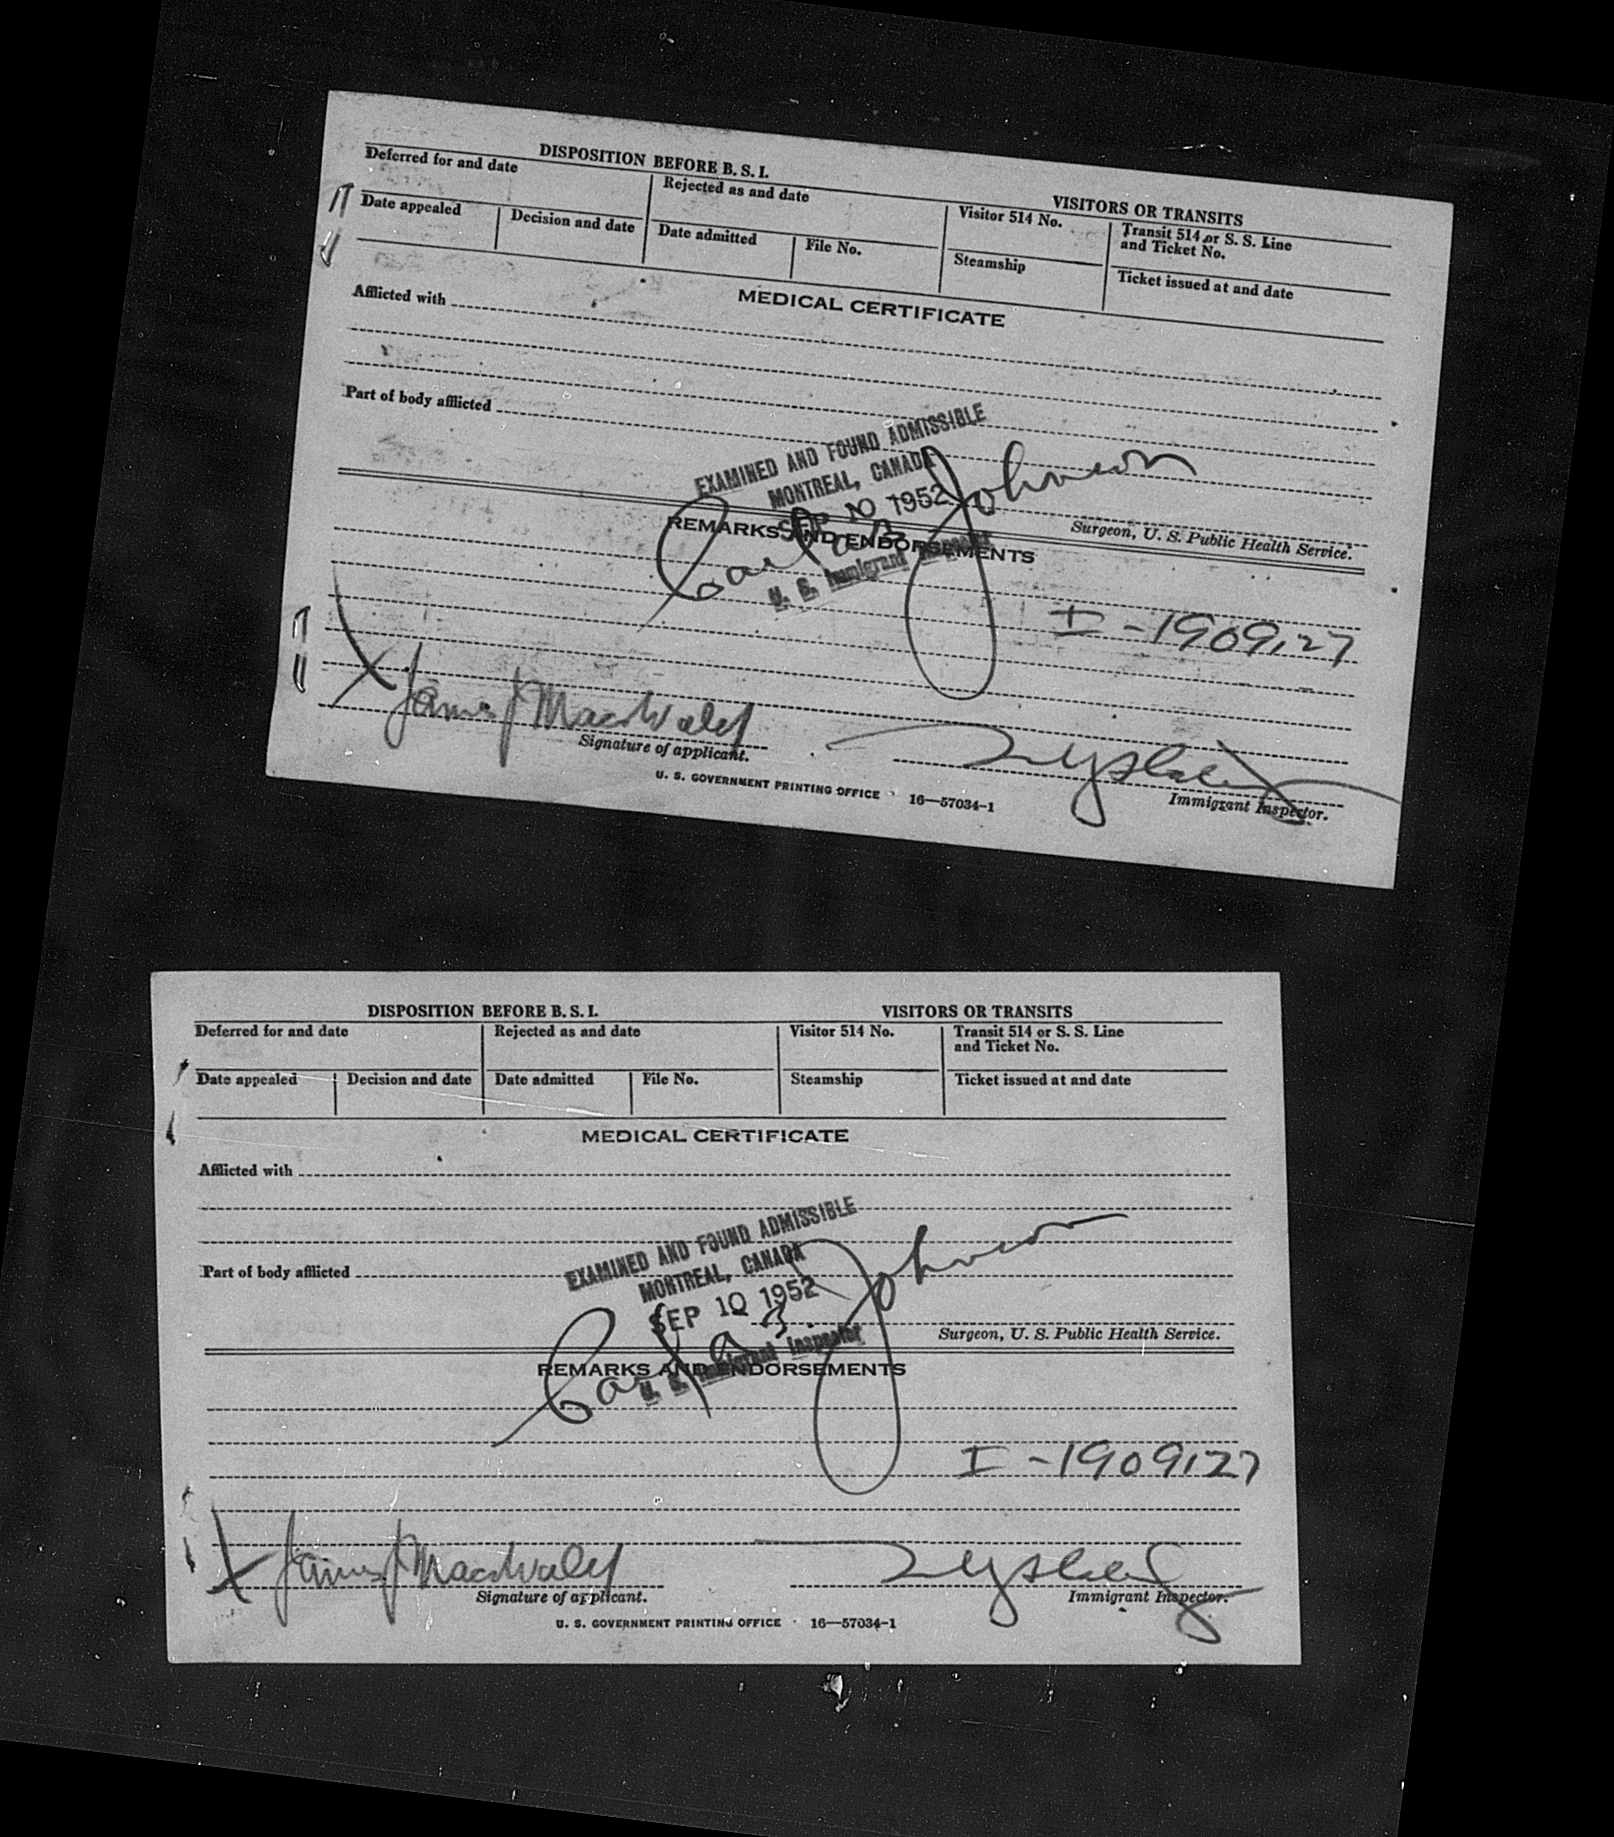 DISPOSITION BEFORE B. S. I.
VISITORS OR TRANSITS
Deferred for and date
Rejected as and date
Visitor 514 No.
Transit 514 or S. S. Line
and Ticket No.
Date appealed
Decision and date
Date admitted
File No.
Steamship
Ticket issued at and date
MEDICAL CERTIFICATE
Afflicted with
Part of body afflicted
EXAMINED AND FOUND ADMISSIBLE
MONTREAL, CANADA
SEP 10 1952
Carl B. Johnson
Surgeon, U. S. Public Health Service.
REMARKS AND ENDORSEMENTS
U. S. Immigrant Inspector
I-1909127
X James J
Signature of applicant.
Immigrant Inspector.
U. S. GOVERNMENT PRINTING OFFICE 16—57034-1
DISPOSITION BEFORE B. S. I.
VISITORS OR TRANSITS
Deferred for and date
Rejected as and date
Visitor 514 No.
Transit 514 or S. S. Line
and Ticket No.
Date appealed
Decision and date
Date admitted
File No.
Steamship
Ticket issued at and date
MEDICAL CERTIFICATE
Afflicted with
Part of body afflicted
EXAMINED AND FOUND ADMISSIBLE
MONTREAL, CANADA
SEP 10 1952
Carl B. Johnson
Surgeon, U. S. Public Health Service.
REMARKS AND ENDORSEMENTS
U. S. Immigrant Inspector
I-1909127
X James J
Signature of applicant.
Immigrant Inspector.
U. S. GOVERNMENT PRINTING OFFICE 16—57034-1